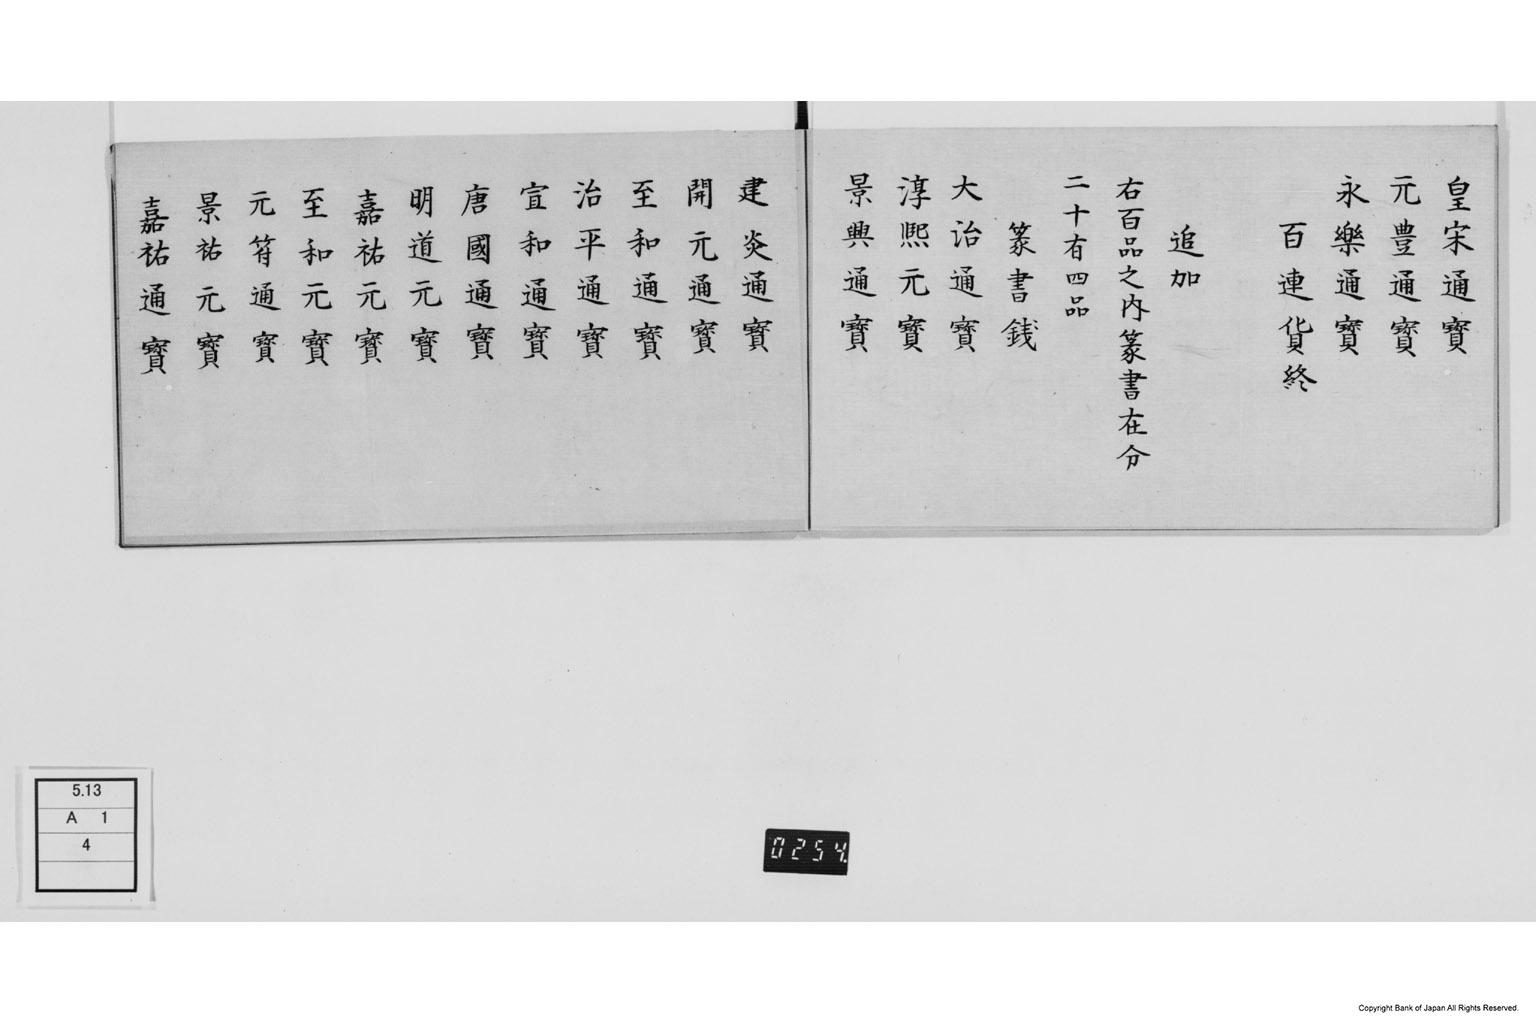 皇宋通寳
元豊通寳
永樂通寳
百連貨終
追加
右百品之内篆書在分
二十有四品
篆書銭
大治通寳
淳熈元寳
景興通寳
建炎通寳
開元通寳
至和通寳
治平通寳
宣和通寳
唐國通寳
明道元寳
嘉祐元寳
至和元寳
元符通寳
景祐元寳
嘉祐通寳
5.13
A 1
4
0254
Copyright Bank of Japan All Rights Reserved.